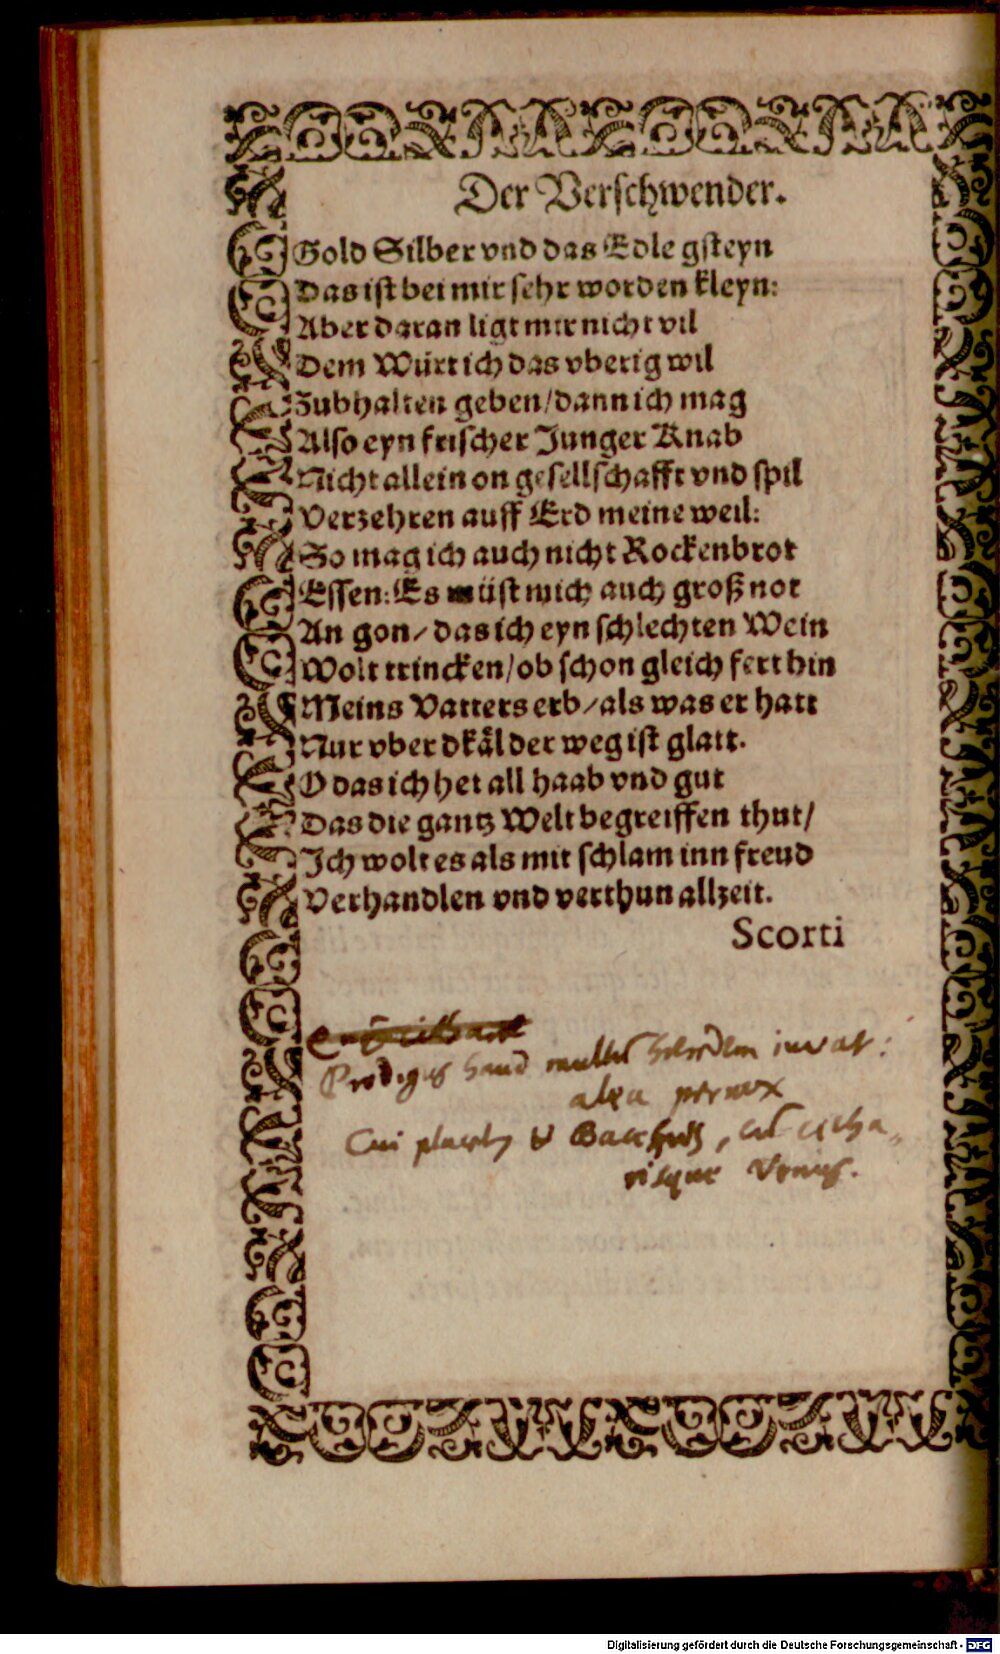 Der Verschwender.
Gold Silber vnd das Edle gsteyn
Das ist bei mir sehr worden kleyn:
Aber daran ligt mir nicht vil
Dem Würt ich das vberig wil
Zubhalten geben/dann ich mag
Also eyn frischer Junger Knab
Nicht allein on gesellschafft vnd spil
Verzehren auff Erd meine weil:
So mag ich auch nicht Rockenbrot
Essen: Es müst mich auch groß not
An gon/ das ich eyn schlechten Wein
Wolt trincken/ob schon gleich fert hin
Meins Vatters erb/als was er hatt
Nur vber dkäl der weg ist glatt.
O das ich het all haab vnd gut
Das die gantz Welt begreiffen thut/
Ich wolt es als mit schlam inn freud
Verhandlen vnd verthun allzeit.
Scorti
Prodigus haud multum iuvat:
alea pernox
Cui placet & Bacchus, citha„
risque Venus.
Digitalisierung gefördert durch die Deutsche Forschungsgemeinschaft - DFG